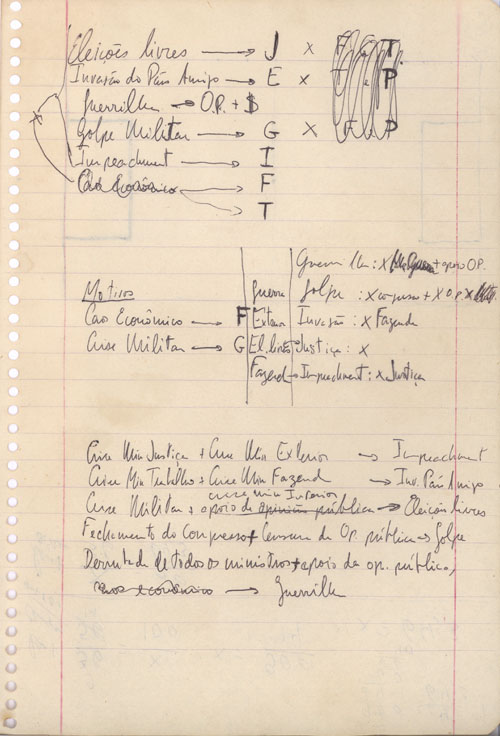 Eleições livres → J x F. T.
Invasão do País Amigo → E x T. P
Guerrilha → O.P. + $
Golpe Militar → G x F. P
Impeachment → I
Caos Econômico → F
→ T
Guerrilha: x + apoio O.P.
Motivos Guerra Golpe: x congresso + x O.P. x
Caos Econômico → F Exterior Invasão: x Fazenda
Crise Militar → G El. livres Justiça: x
Fazend → Impeachment: x Justiça
Crise Min Justiça + Crise Min Exterior → Impeachment
Crise Min Trabalho + Crise Min Fazend → Inv. País Amigo
crise min Interior
Crise Militar + apoio da opinião pública → Eleições livres
Fechamento do Congresso + Censura da Op. pública → Golpe
Derrubada de todos os ministros + apoio da op. pública,
caos econômico → Guerrilha